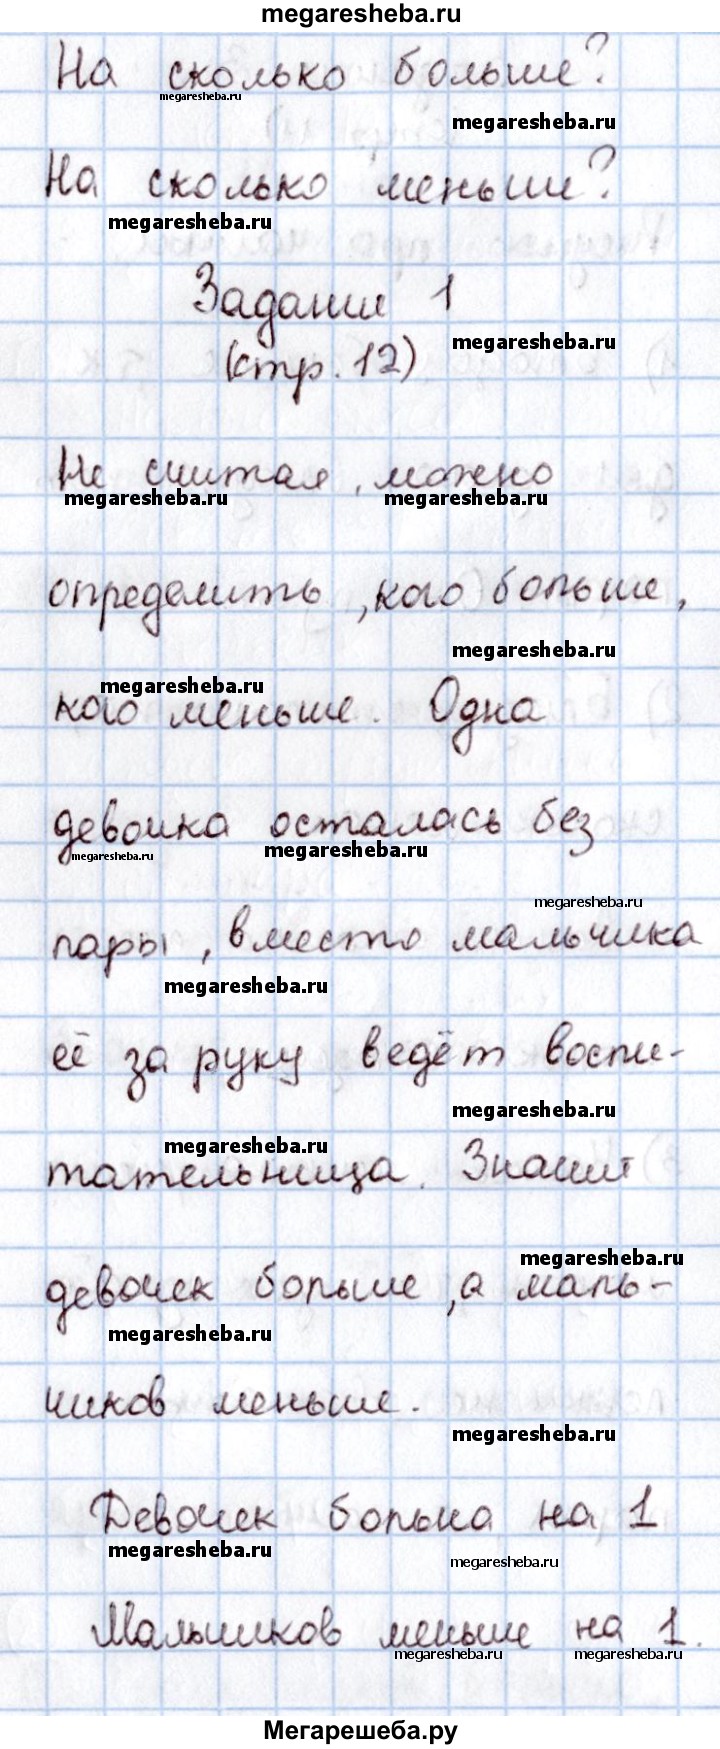 megaresheba.ru
На сколько больше?
megaresheba.ru
megaresheba.ru
На сколько меньше?
megaresheba.ru
Задание 1
megaresheba.ru
(стр. 12)
Не считая, можно
megaresheba.ru megaresheba.ru
определить, кого больше,
megaresheba.ru
megaresheba.ru
кого меньше. Одна
девочка осталась без
megaresheba.ru megaresheba.ru
megaresheba.ru
пары, вместо мальчика
megaresheba.ru
её за руку ведёт воспи-
megaresheba.ru
megaresheba.ru
тательница. Значит
megaresheba.ru
девочек больше, а маль-
megaresheba.ru
чиков меньше.
megaresheba.ru
Девочек больше на 1
megaresheba.ru
megaresheba.ru
Мальчиков меньше на 1.
megaresheba.ru megaresheba.ru
Мегарешеба.ру